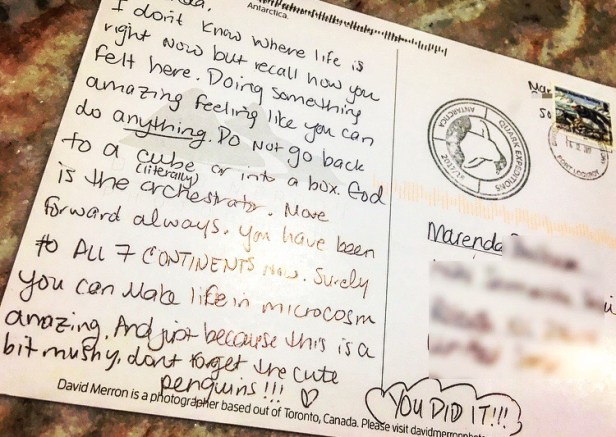 Antarctica.
I don't know where life is
right now but recall how you
felt here. Doing something
amazing feeling like you can
do anything. Do NOT go back
to a cube or into a box. God
(literally)
is the orchestrator. Move
forward always. You have been
to ALL 7 CONTINENTS now. Surely
you can make life in microcosm
amazing. And just because this is a
bit mushy, dont forget the cute
penguins!!!
YOU DID IT!!!
David Merron is a photographer based out of Toronto, Canada. Please visit
ANTARCTICA
QUARK EXPEDITIONS
PORT LOCKROY
Marenda